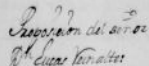 Proposicion del señor
Dn Lucas Veinaltes